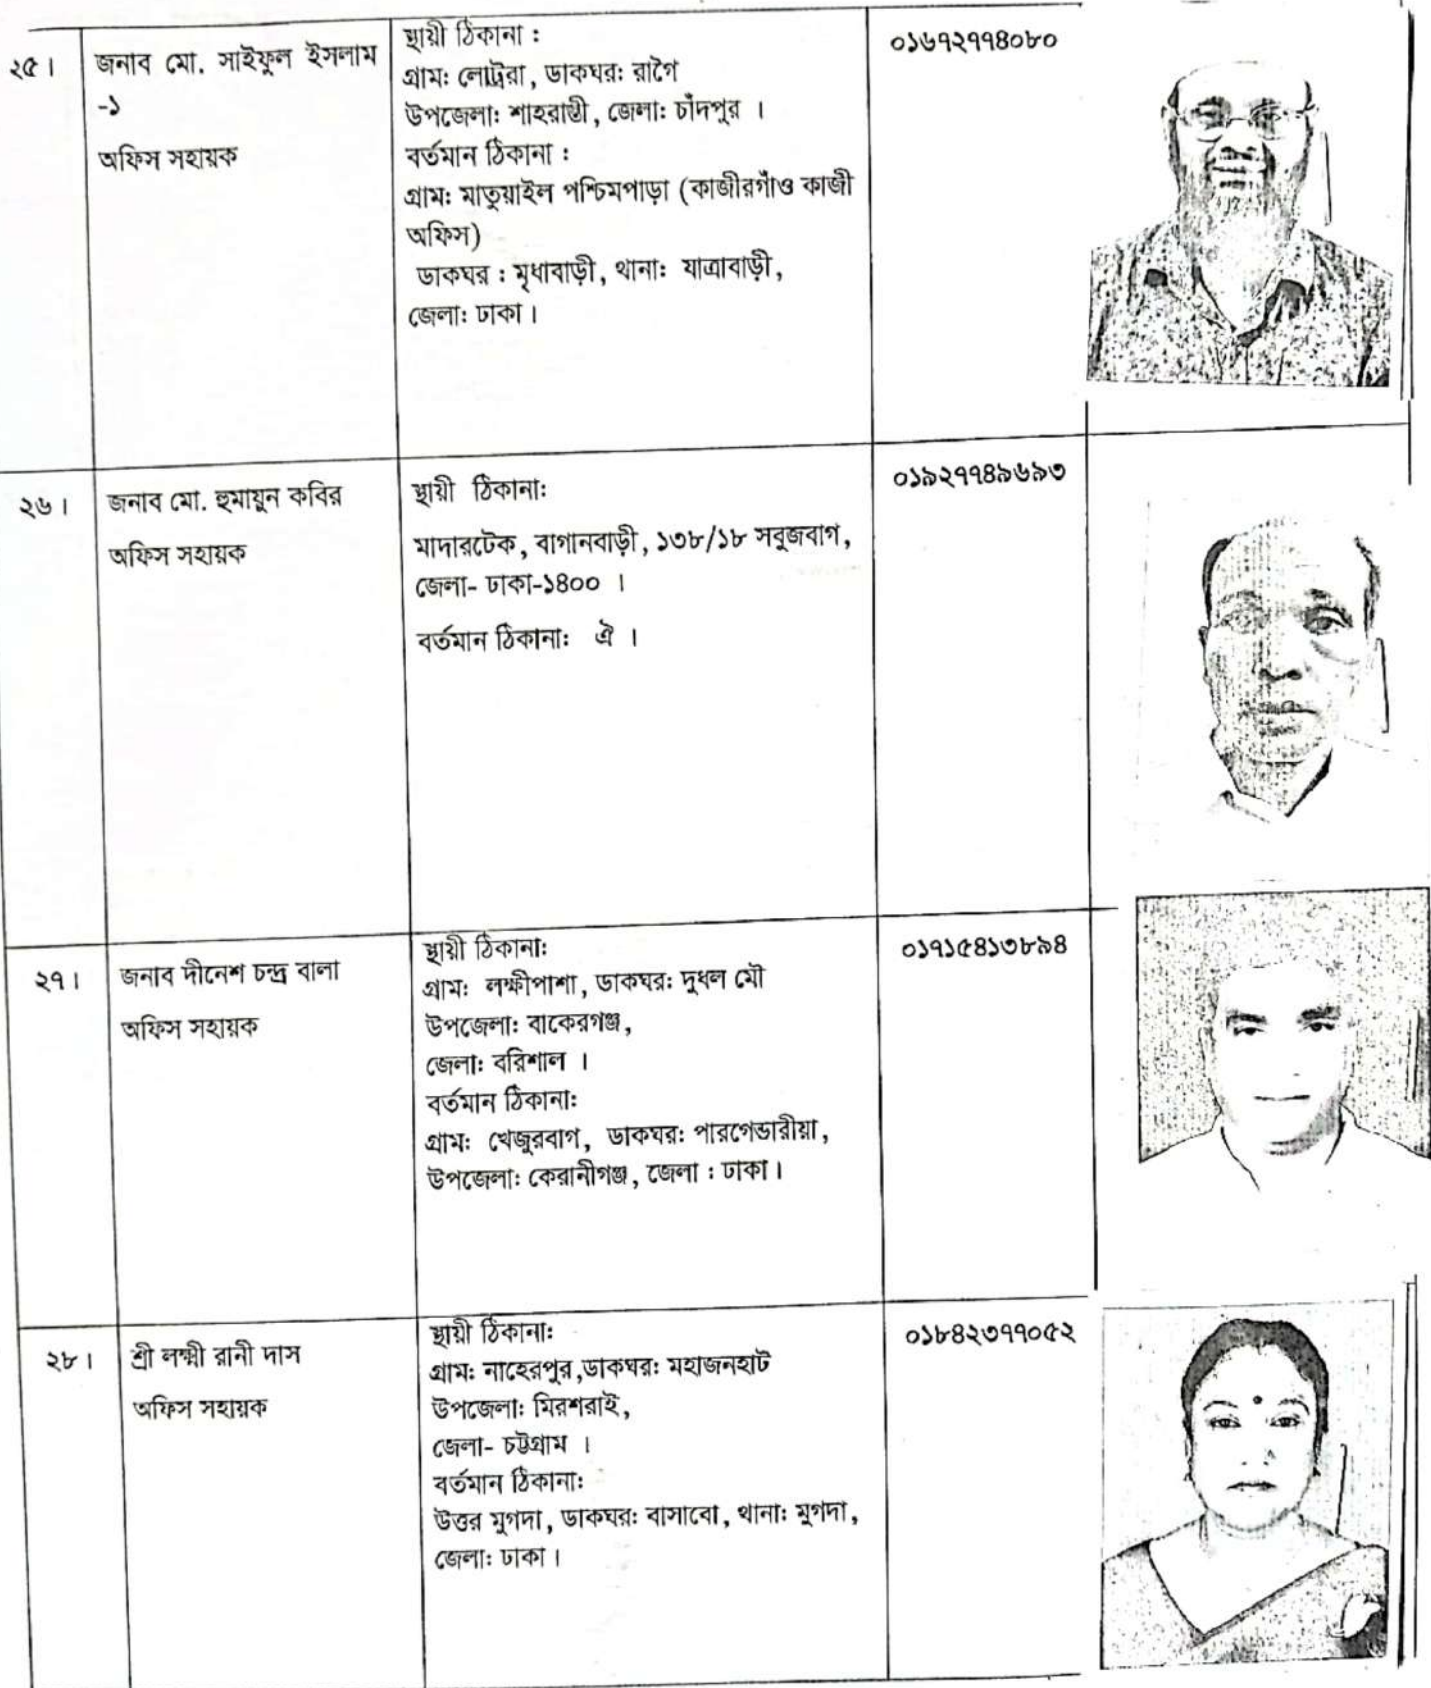 ২৫।
জনাব মো. সাইফুল ইসলাম
-১
অফিস সহায়ক
স্থায়ী ঠিকানা :
গ্রাম: লোট্রো, ডাকঘর: রাগৈ
উপজেলা: শাহরাস্তী, জেলা: চাঁদপুর ।
বর্তমান ঠিকানা :
গ্রাম: মাতুয়াইল পশ্চিমপাড়া (কাজীরগাঁও কাজী
অফিস)
ডাকঘর : মৃধাবাড়ী, থানা: যাত্রাবাড়ী,
জেলা: ঢাকা।
০১৬৭২৭৭৪০৮০
২৬।
জনাব মো. হুমায়ুন কবির
অফিস সহায়ক
স্থায়ী ঠিকানা:
মাদারটেক, বাগানবাড়ী, ১৩৮/১৮ সবুজবাগ,
জেলা- ঢাকা-১৪০০ ।
বর্তমান ঠিকানা: ঐ ।
০১৯২৭৭৪৯৬৯৩
২৭।
জনাব দীনেশ চন্দ্র বালা
অফিস সহায়ক
স্থায়ী ঠিকানা:
গ্রাম: লক্ষীপাশা, ডাকঘর: দুধল মৌ
উপজেলা: বাকেরগঞ্জ,
জেলা: বরিশাল ।
বর্তমান ঠিকানা:
গ্রাম: খেজুরবাগ, ডাকঘর: পারগেন্ডারীয়া,
উপজেলা: কেরানীগঞ্জ, জেলা : ঢাকা।
০১৭১৫৪১৩৮৯৪
২৮।
শ্রী লক্ষ্মী রানী দাস
অফিস সহায়ক
স্থায়ী ঠিকানা:
গ্রাম: নাহেরপুর,ডাকঘর: মহাজনহাট
উপজেলা: মিরশরাই,
জেলা- চট্টগ্রাম ।
বর্তমান ঠিকানা:
উত্তর মুগদা, ডাকঘর: বাসাবো, থানা: মুগদা,
জেলা: ঢাকা।
০১৮৪২৩৭৭০৫২